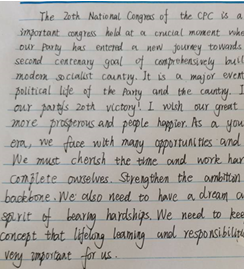 The 20th National Congress of the CPC is a
important congress held at a crucial moment whe
our Party has entered a new journey towards
second centenary goal of comprehensively buil
modern socialist country. It is a major event
political life of the Party and the country. I
our party's 20th victory! I wish our great
more prosperous and people happier. As a you
era, we face with many opportunities and
We must cherish the time and work har
complete ourselves. Strengthen the ambition
backbone. We also need to have a dream a
spirit of bearing hardships. We need to kee
concept that lifelong learning and responsibilit
very important for us.